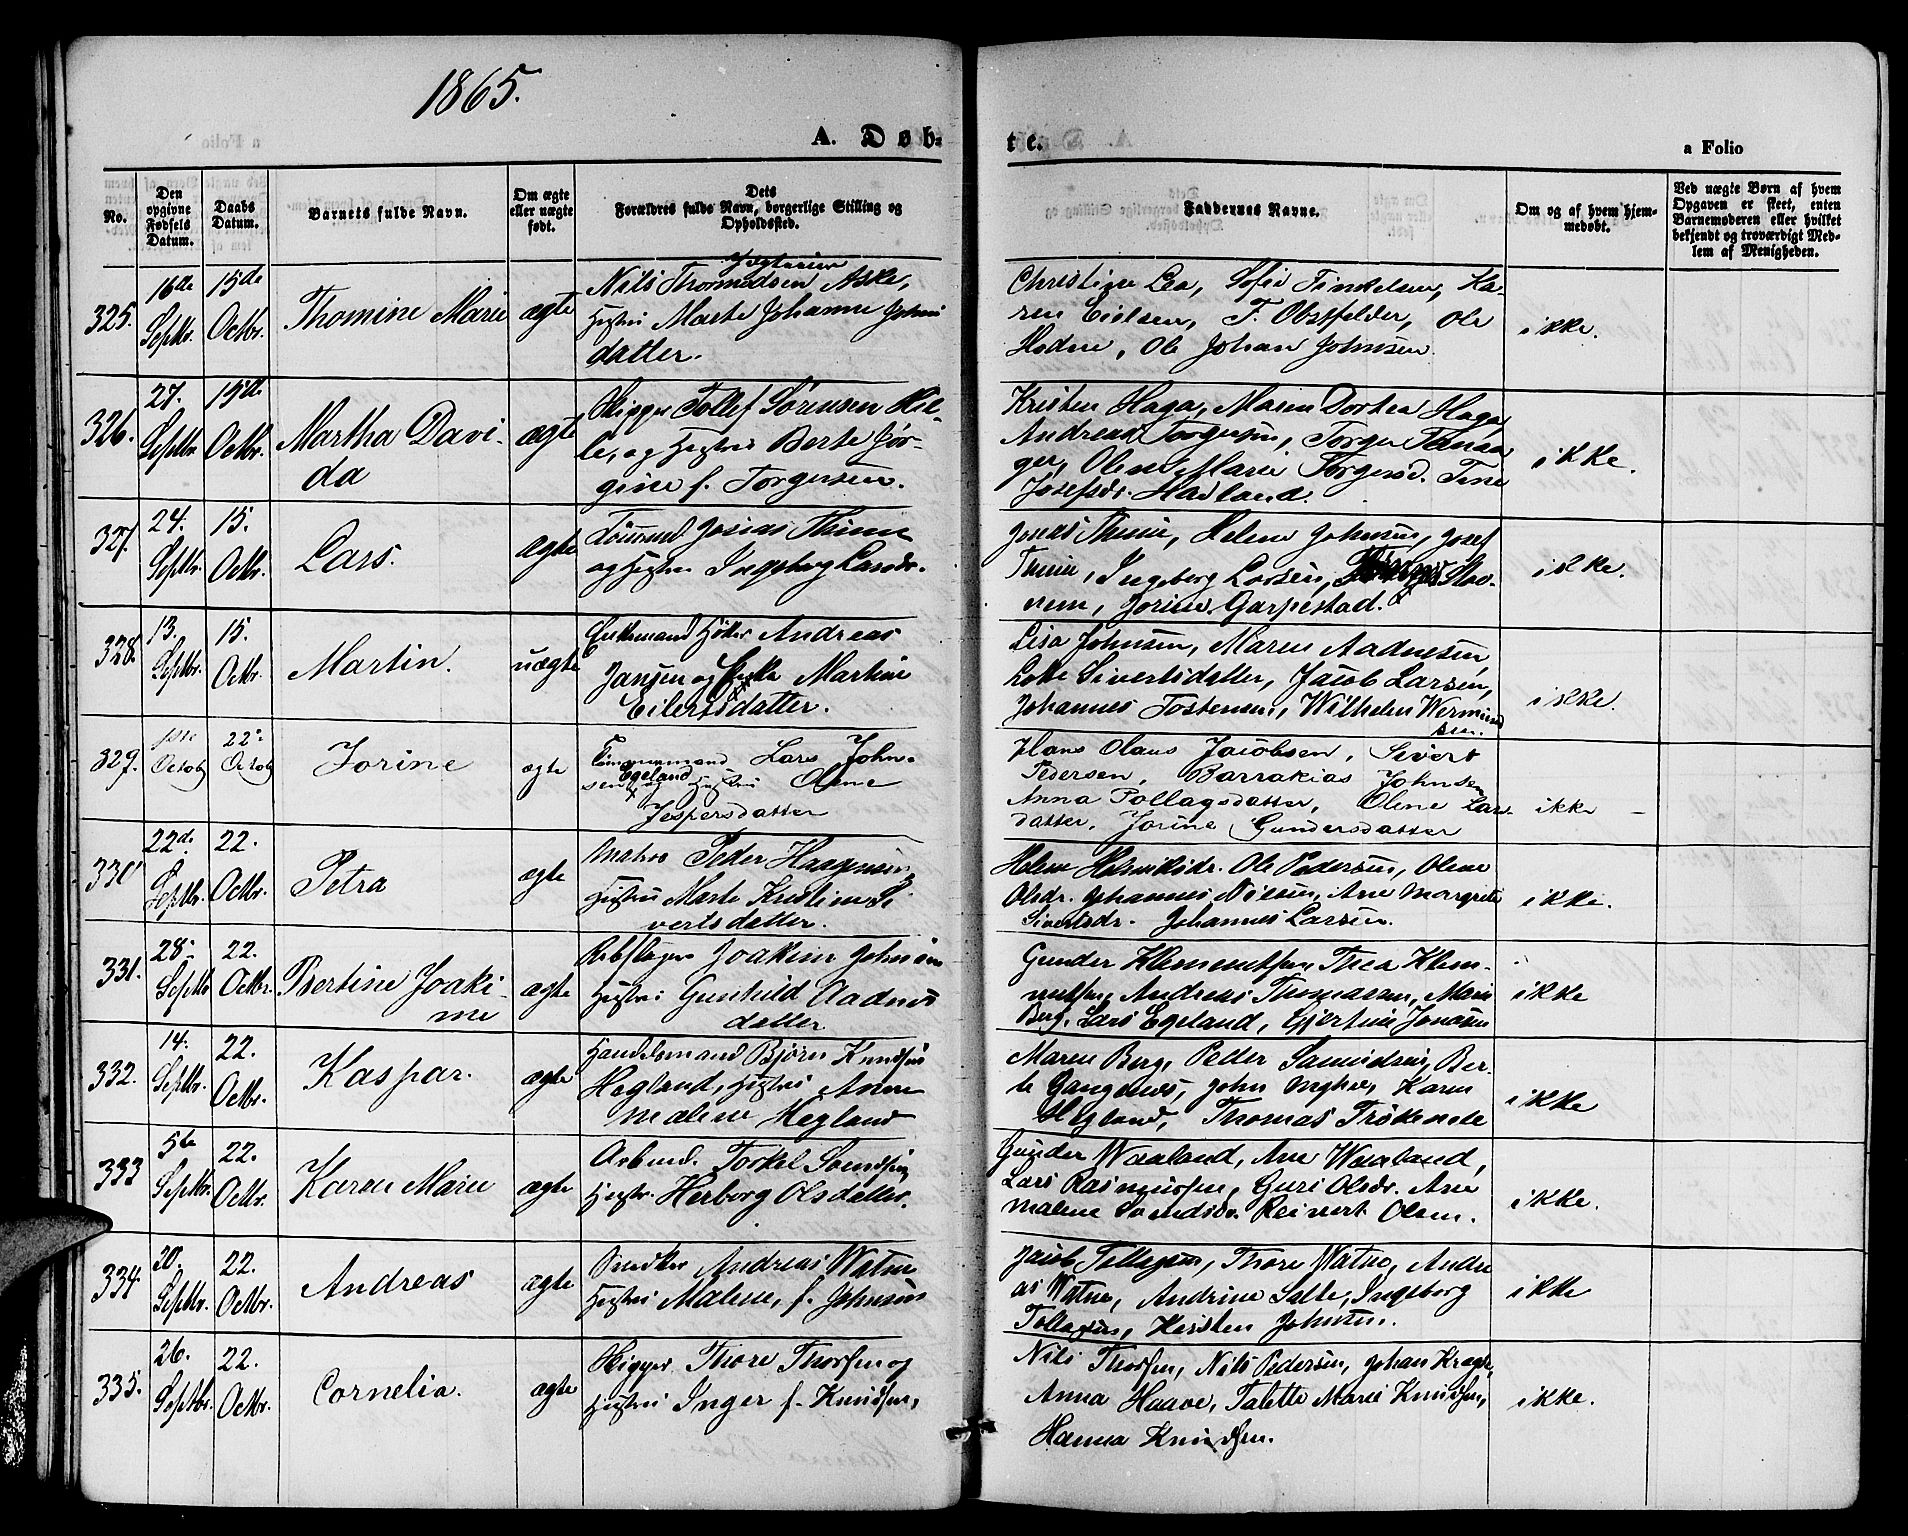 1865.
A. Døb-
te.
a Folio
No.
Den opgivne Fødsels Datum.
Daabs Datum.
Barnets fulde Navn.
Om ægte eller uægte født.
Dets Forældres fulde Navn, borgerlige Stilling og Opholdssted.
Faddernes Navne.
Om og af hvem hjemmedøbt.
Ved uægte Børn af hvem Opgaven er skeet, enten Barnemoderen eller hvilket bekjendt og troværdigt Medlem af Menigheden.
325. 16de Septbr. 15de Octbr. Thomine Marie ægte
Nils Thormodsen Aske,
Hustru Marte Johanne Johns
datter.
Christine Lea, Sofie Finkelsen, Ka-
ren Eielsen, F. Obstfelder, Ole
Hodne, Ole Johan Johnsen
ikke.
326. 27. Septbr. 15de Octbr. Martha Davi-
da ægte
Skipper Tollef Sørensen Hil-
le, og Hustru Berte Jør-
gine f. Torgersen.
Kristen Haga, Maren Dortea Haga
Andreas Torgersen, Torger Tananger
ger, Olene Marie Torgersd. Tine
Josefsdr. Hadland.
ikke.
327. 24. Septbr. 15. Octbr. Lars. ægte
Tømmrmd Josias Thime
og Hustru Ingeborg Larsdr.
Jonas Thime, Helene Johnsen, Josef
Thime, Ingeborg Larsen, Stav-
nem, Jorine Garpestad.
ikke.
328. 13. Septbr. 15. Octbr. Martin. uægte
Enkemand Høker Andreas
Jansen og Enke Martine
Eilertsdatter.
Lisa Johnsen, Maren Aadnesen,
Lotte Sivertsdatter, Jacob Larsen,
Johannes Tostensen, Wilhelm Wermund
sen.
ikke.
329. 1ste Octob 22de Octob Jorine ægte
Tømmermand Lars John-
sen Egeland og Hustru Olene
Jespersdatter
Hans Olaus Jacobsen, Sivert
Pedersen, Barrakias Johnsen
Anna Pollagsdatter, Olene Lars-
datter, Jorine Gundersdatter
ikke –
330 22de Septbr. 22. Octbr. Petra ægte
Matros Peder Haagensen,
Hustru Marte Kristine Si
vertsdatter.
Helene Henriksdr. Ole Pedersen, Olene
Olsdr. Johannes Nilsen, Ane Margrete
Sivertsdr. Johannes Larsen.
ikke.
331. 28. Septbr 22. Octbr. Bertine Joaki-
me ægte
Rebslager Joakim Johnsen
Hustru Gunhild Aadnes
datter
Gunder Klementsen Thea Klem-
metsen, Andreas Thomassen, Maren
Berg, Lars Egeland, Gjertine Jonasen
ikke
332. 14. Septbr. 22. Octbr. Kaspar. ægte
Handelsmand Bjørn Knudsen
Hegland, Hustru Anne
Malene Hegland
Maren Berg, Peder Samuelsen, Ber-
te Gangenes, John Meghe, Karen
Hegland, Thomas Trøkenede
ikke
333 5te Septbr. 22. Octbr. Karen Marie ægte
Arbmd. Torkel Svendsen
Hustr. Herborg Olsdatter.
Gunder Waaland, Ane Waaland,
Lars Rasmussen, Guri Olsdr. Ane
Malene Svendsdr. Reinert Olsen.
ikke.
334. 20. Septbr. 22. Octbr. Andreas ægte
Snedker Andreas Watne
Hustru Malene, f. Johnsen
Jacob Tollagsen, Thore Watne, Andre
as Watne, Andrine Salte, Ingeborg
Tollagsen, Kersten Johnsen.
ikke
335. 26. Septbr. 22. Octbr. Cornelia. ægte
Skipper Thore Thorsen og
Hustru Inger f. Knudsen,
Nils Thorsen, Nils Pedersen, Johan Kragh,
Anna Haave, Talette Marie Knudsen,
Hanna Knudsen.
ikke.